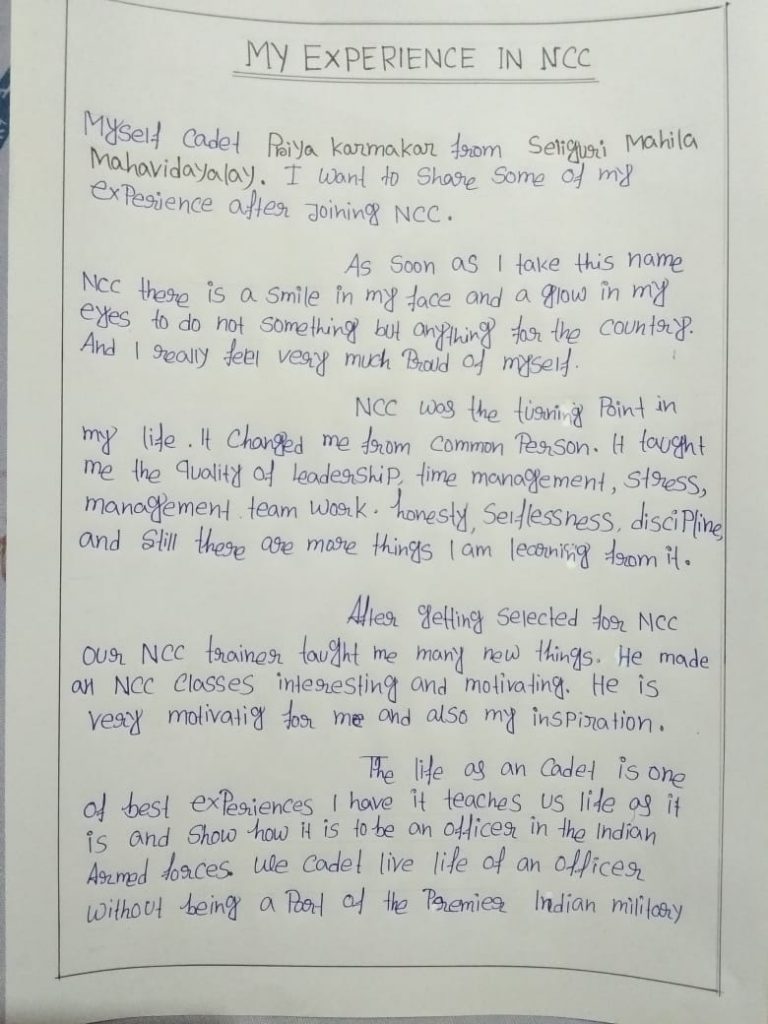 MY EXPERIENCE IN NCC
Myself Cadet Priya Karmakar from Seliguri Mahila
Mahavidayalay. I want to share some of my
experience after joining NCC.
As soon as I take this name
NCC there is a smile in my face and a glow in my
eyes to do not something but anything for the country.
And I really feel very much Proud of myself.
NCC was the turning Point in
my life. It changed me from common Person. It taught
me the quality of leadership, time management, stress,
management team work. honesty, selflessness, discipline,
and still there are more things I am learning from it.
After getting selected for NCC
our NCC trainer taught me many new things. He made
an NCC classes interesting and motivating. He is
very motivatig for me and also my inspiration.
The life as an cadet is one
of best experiences I have it teaches us life as it
is and show how it is to be an officer in the Indian
Armed forces. We cadet live life of an officer
without being a Part of the Premier Indian military